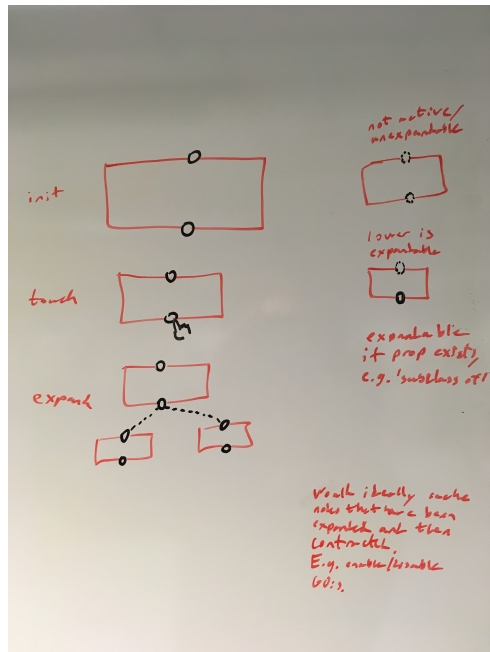 init
touch
expand
not active/
unexpandable
lower is
expandable
expandable
if prop exists,
e.g. 'subclass of'
Would ideally cache
nodes that have been
expanded and then
contracted.
E.g. enable/disable
GO:s.